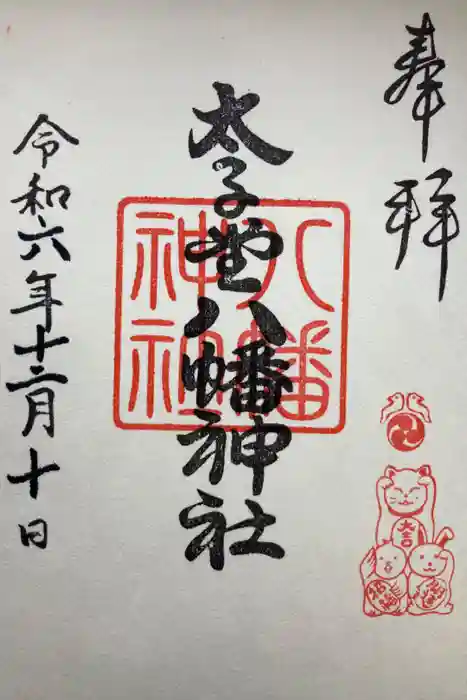 奉拝
太子堂八幡神社
八幡
神社
大吉
令和六年十二月十日